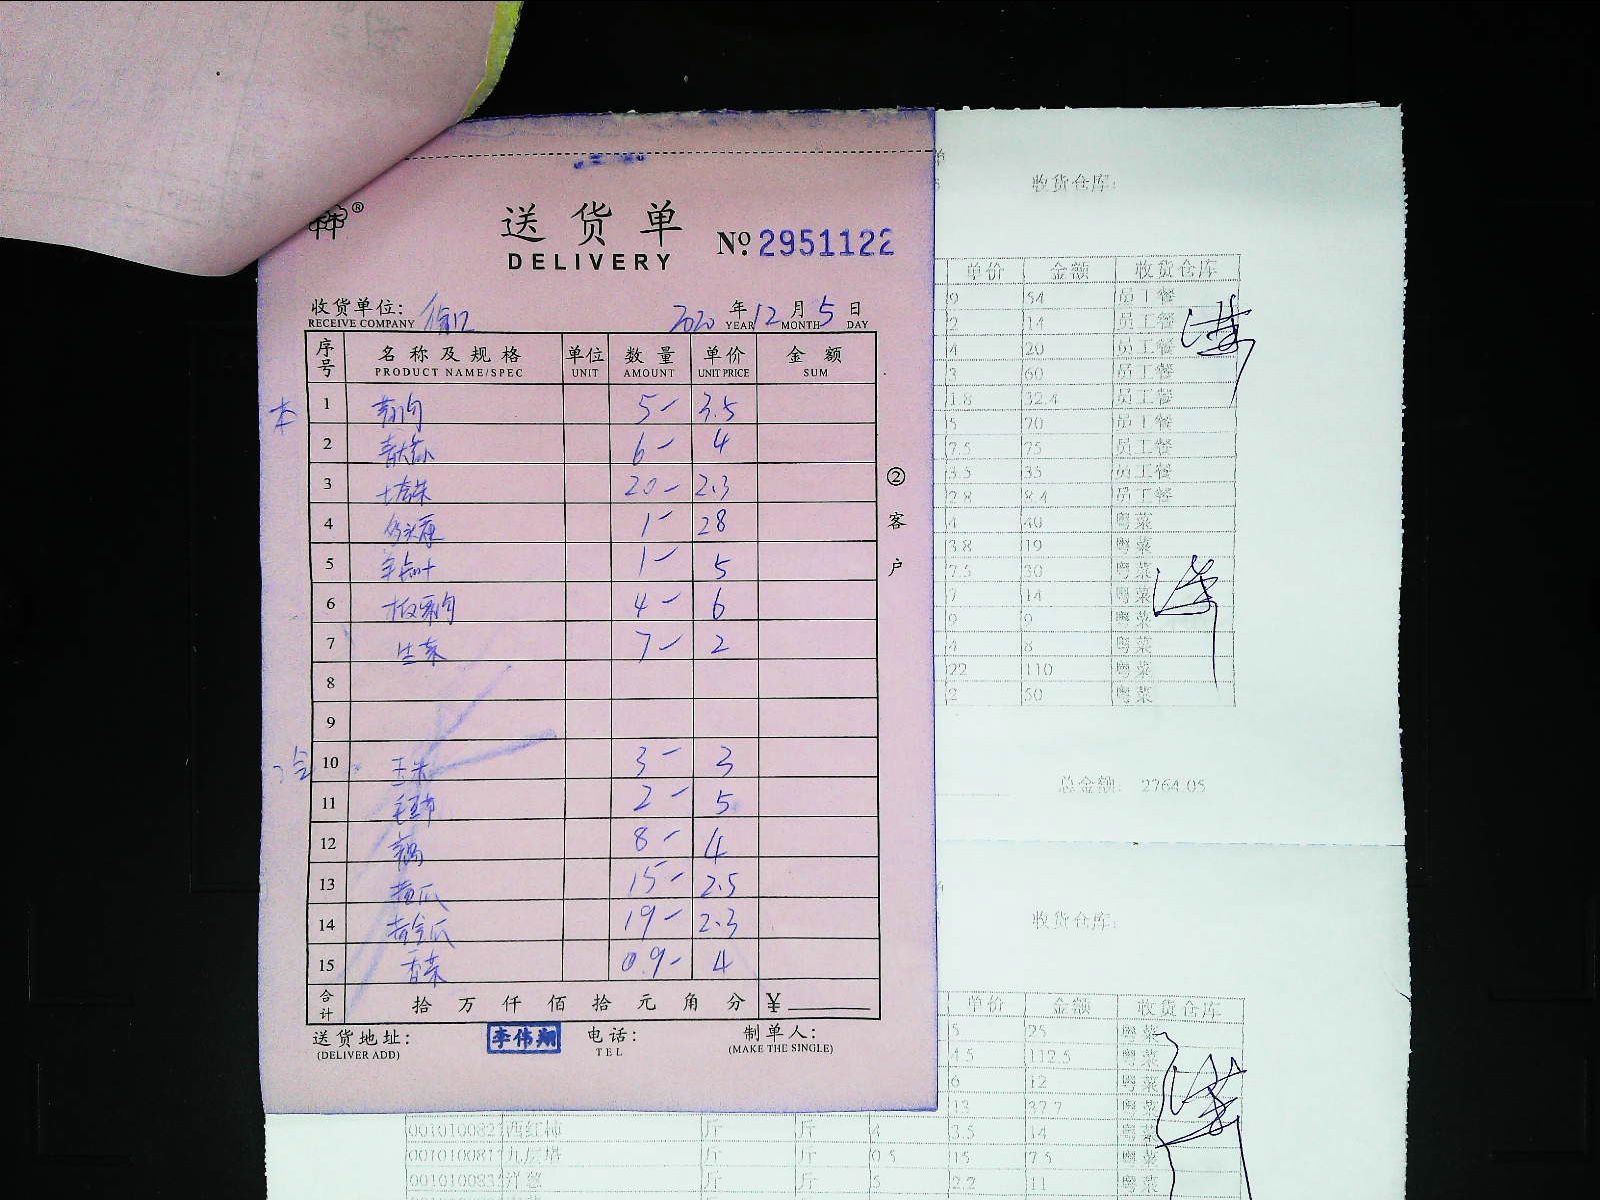 送货单
DELIVERY
№ 2951122
收货单位:
RECEIVE COMPANY
2020 年 12 月 5 日
YEAR MONTH DAY
序号 名称及规格 单位 数量 单价 金额
PRODUCT NAME/SPEC UNIT AMOUNT UNIT PRICE SUM
1 5- 3.5
2 6- 4
3 20- 2.3
4 1- 28
5 1- 5
6 4- 6
7 生菜 7- 2
8
9
10 玉米 3- 3
11 2- 5
12 8- 4
13 黄瓜 15- 2.5
14 19- 2.3
15 香菜 0.9- 4
合计 拾 万 仟 佰 拾 元 角 分 ¥
送货地址: 李伟翔 电话: 制单人:
(DELIVER ADD) TEL (MAKE THE SINGLE)
②客户
收货仓库:
单价 金额 收货仓库
9 54 员工餐
2 14 员工餐
4 20 员工餐
3 60 员工餐
1.8 32.4 员工餐
5 70 员工餐
7.5 75 员工餐
3.5 35 员工餐
2.8 8.4 员工餐
4 40 粤菜
3.8 19 粤菜
7.5 30 粤菜
7 14 粤菜
9 9 粤菜
4 8 粤菜
22 110 粤菜
2 50 粤菜
总金额: 2764.05
收货仓库:
单价 金额 收货仓库
5 25 粤菜
4.5 112.5 粤菜
6 12 粤菜
13 37.7 粤菜
西红柿 斤 斤 4 3.5 14 粤菜
九层塔 斤 斤 0.5 15 7.5 粤菜
洋葱 斤 斤 5 2.2 11 粤菜